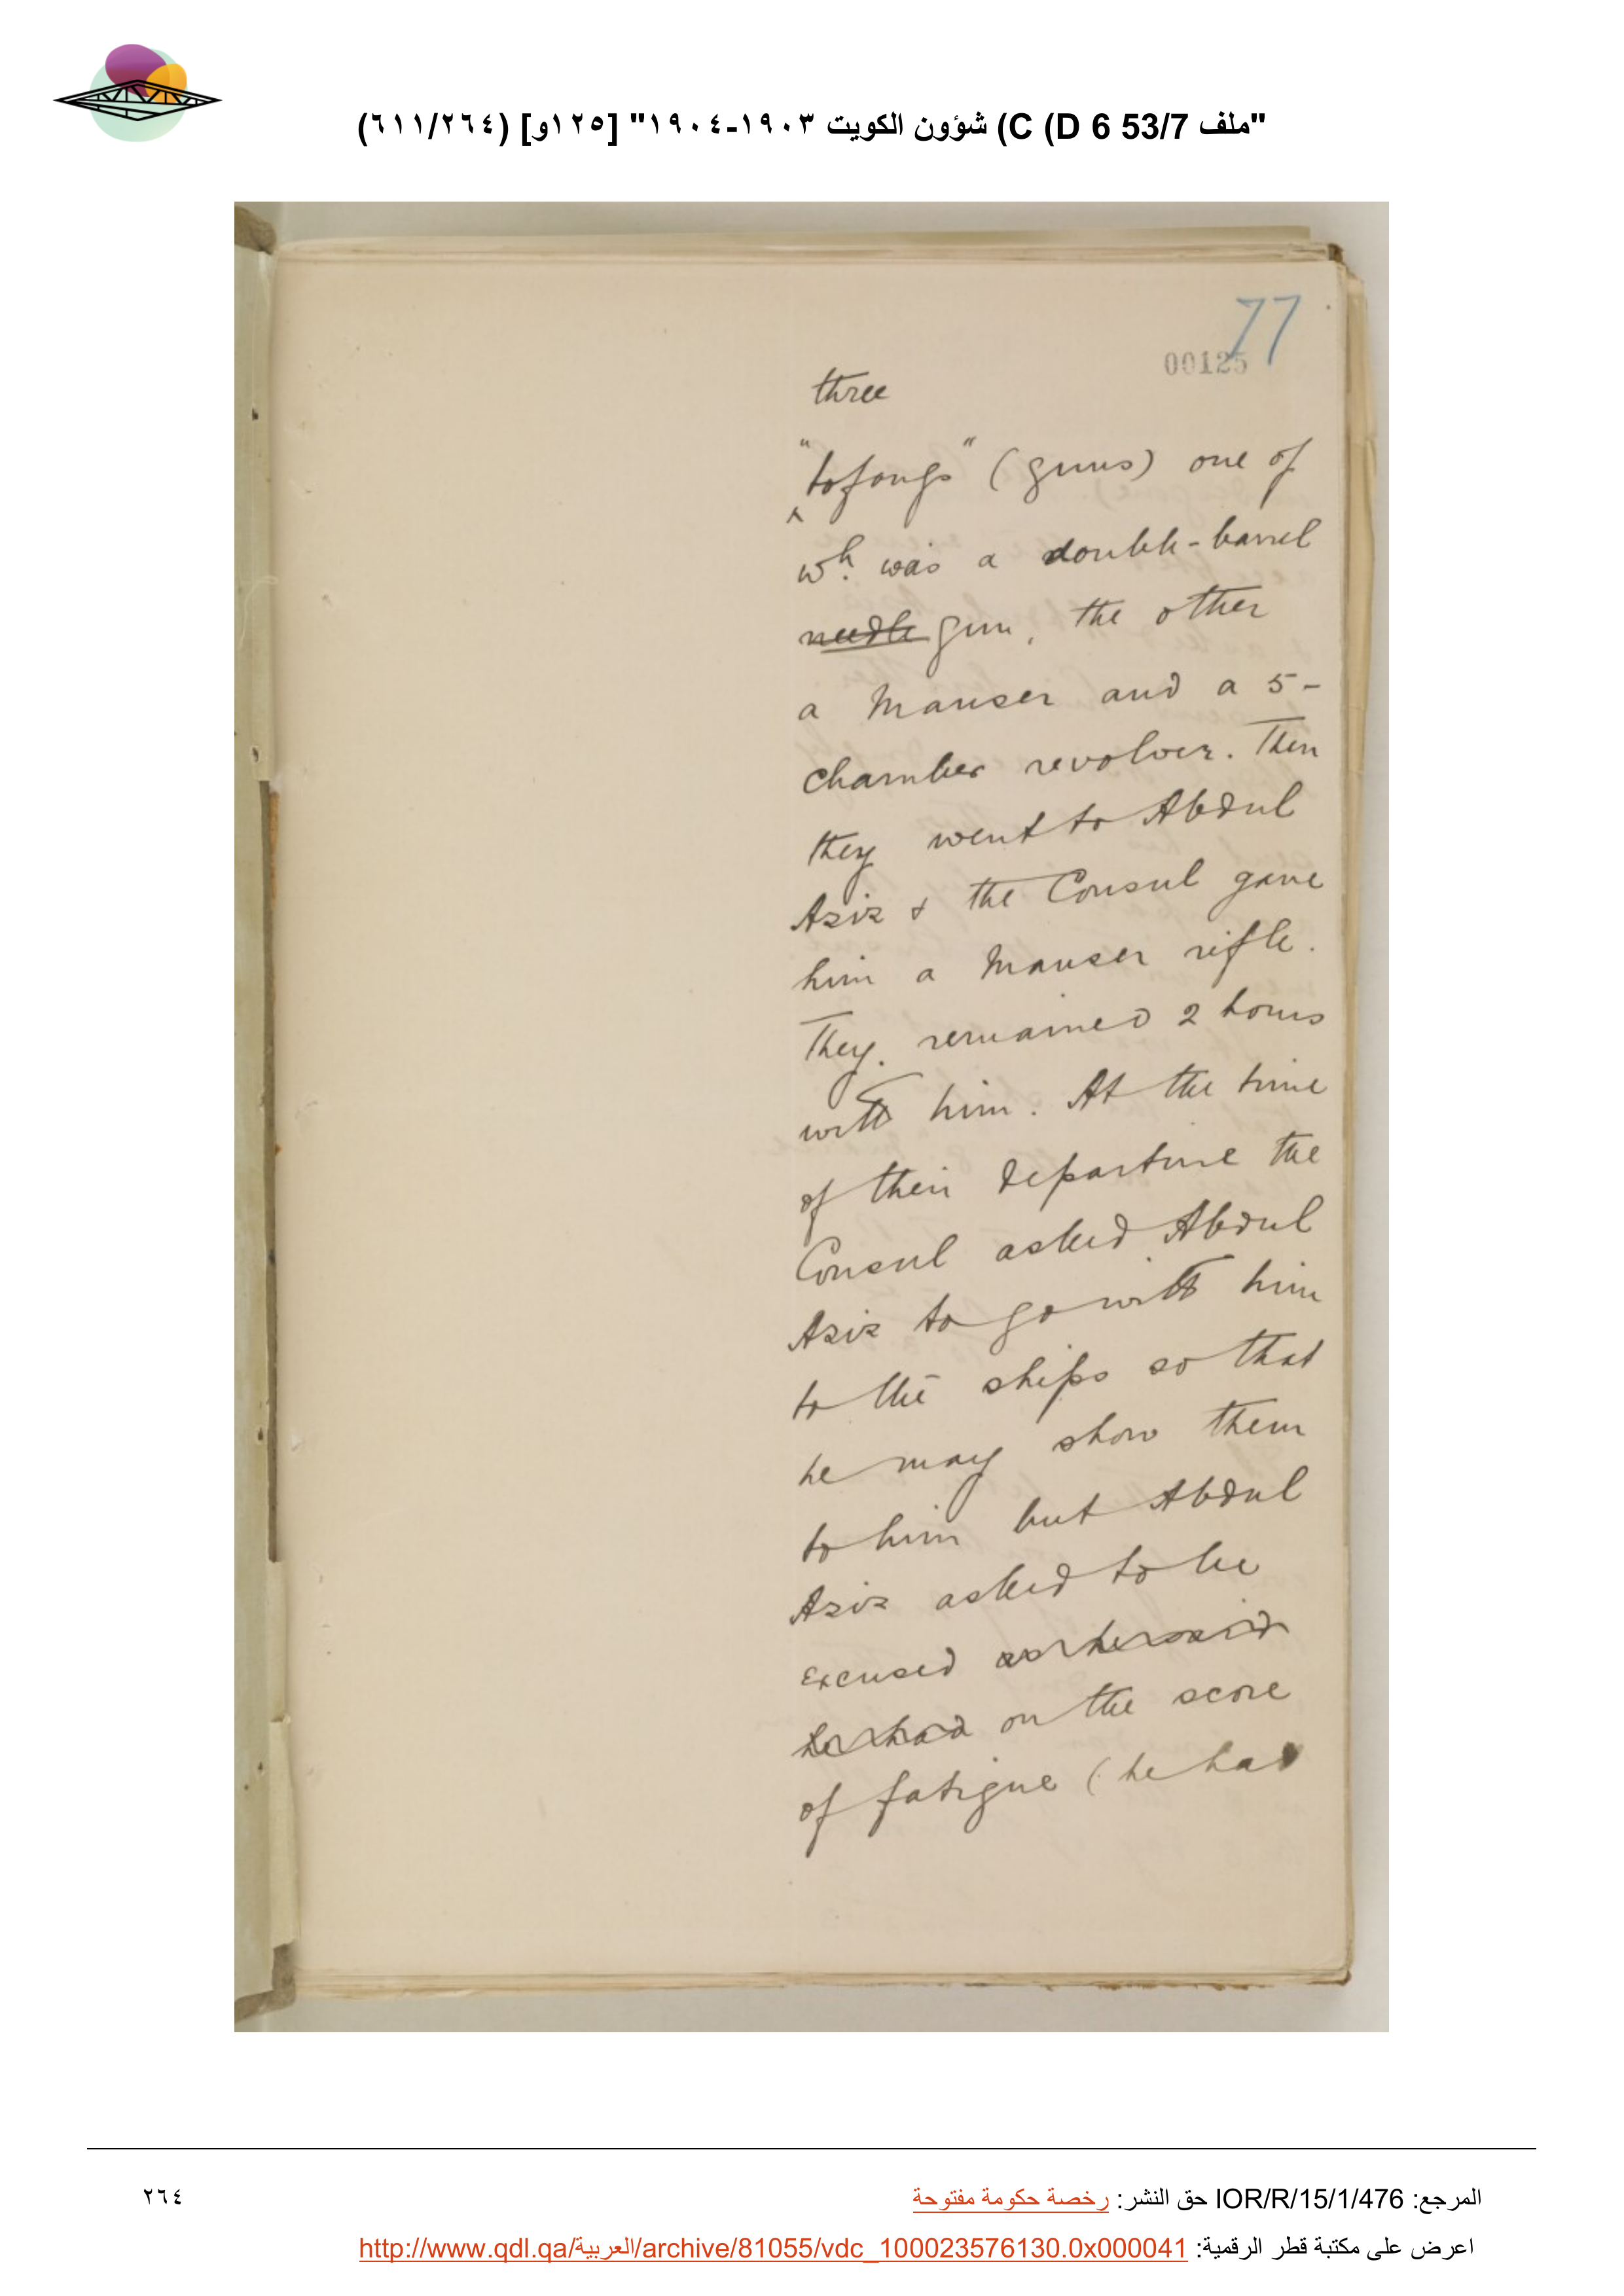 "ملف 53/7 D 6) C) شؤون الكويت ١٩٠٣-١٩٠٤" [١٢٥و] (٦١١/٢٦٤)
77
00125
three
"tofongs" (guns) one of
wh. was a double-barrel
needle gun, the other
a Mauser and a 5-
chamber revolver. Then
they went to Abdul
Aziz & the Consul gave
him a Mauser rifle.
They remained 2 hours
with him. At the time
of their departure the
Consul asked Abdul
Aziz to go with him
to the ships so that
he may show them
to him but Abdul
Aziz asked to be
excused as he said
he had on the score
of fatigue (he had
المرجع: IOR/R/15/1/476 حق النشر: رخصة حكومة مفتوحة
٢٦٤
اعرض على مكتبة قطر الرقمية: http://www.qdl.qa/العربية/archive/81055/vdc_100023576130.0x000041